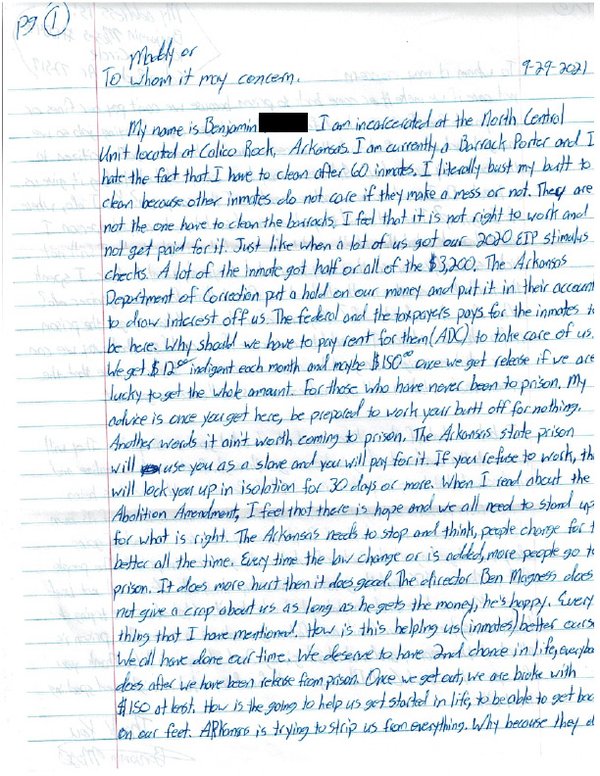 pg 1
Maddy or
To whom it may concern. 9-29-2021
My name is Benjamin I am incarcerated at the North Central
Unit located at Calico Rock, Arkansas. I am currently a Barrack Porter and I
hate the fact that I have to clean after 60 inmates. I literally bust my butt to
clean because other inmates do not care if they make a mess or not. They are
not the one have to clean the barracks. I feel that it is not right to work and
not get paid for it. Just like when a lot of us got our 2020 EIP stimulus
checks. A lot of the inmate got half or all of the $3,200. The Arkansas
Department of Correction put a hold on our money and put it in their account
to draw interest off us. The federal and the taxpayers pays for the inmates to
be here. Why should we have to pay rent for them (ADC) to take care of us.
We get $12.00 indigent each month and maybe $150.00 once we get release if we are
lucky to get the whole amount. For those who have never been to prison, My
advice is once you get here, be prepared to work your butt off for nothing.
Another words it ain't worth coming to prison. The Arkansas state prison
will use you as a slave and you will pay for it. If you refuse to work, th
will lock you up in isolation for 30 days or more. When I read about the
Abolition Amendment, I feel that there is hope and we all need to stand up
for what is right. The Arkansas needs to stop and think, people change for t
better all the time. Every time the law change or is added, more people go t
prison. It does more hurt then it does good. The director Ben Magness does
not give a crap about us as long as he gets the money, he's happy. Every
thing that I have mentioned. How is this helping us (inmates) better ours
We all have done our time. We deserve to have 2nd chance in life, everybo
does after we have been release from prison. Once we get out, we are broke with
$150 at least. How is the going to help us get started in life, to be able to get bac
on our feet. ARkansas is trying to strip us from everything. Why because they d